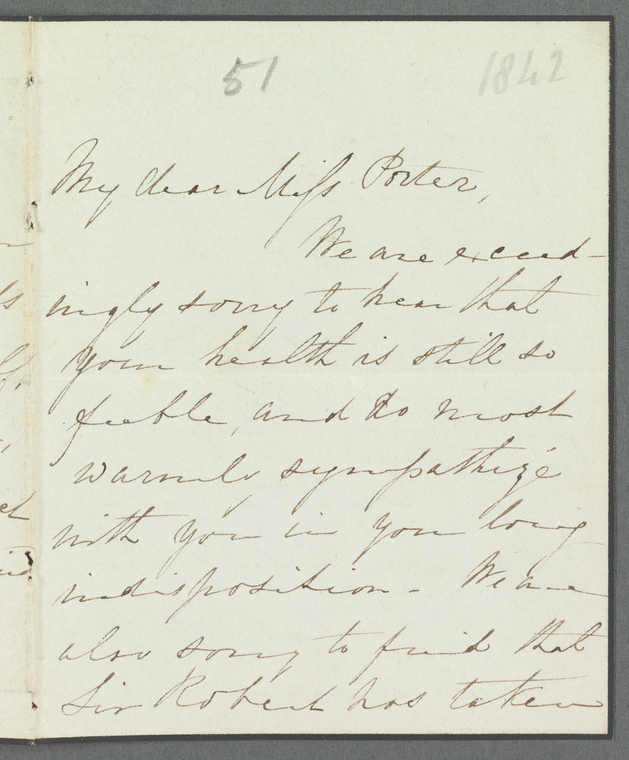 51 1842
My dear Miss Porter,
We are exceed-
ingly sorry to hear that
your health is still so
feeble, and do most
warmly sympathize
with you in your long
indisposition - We are
also sorry to find that
Sir Robert has taken